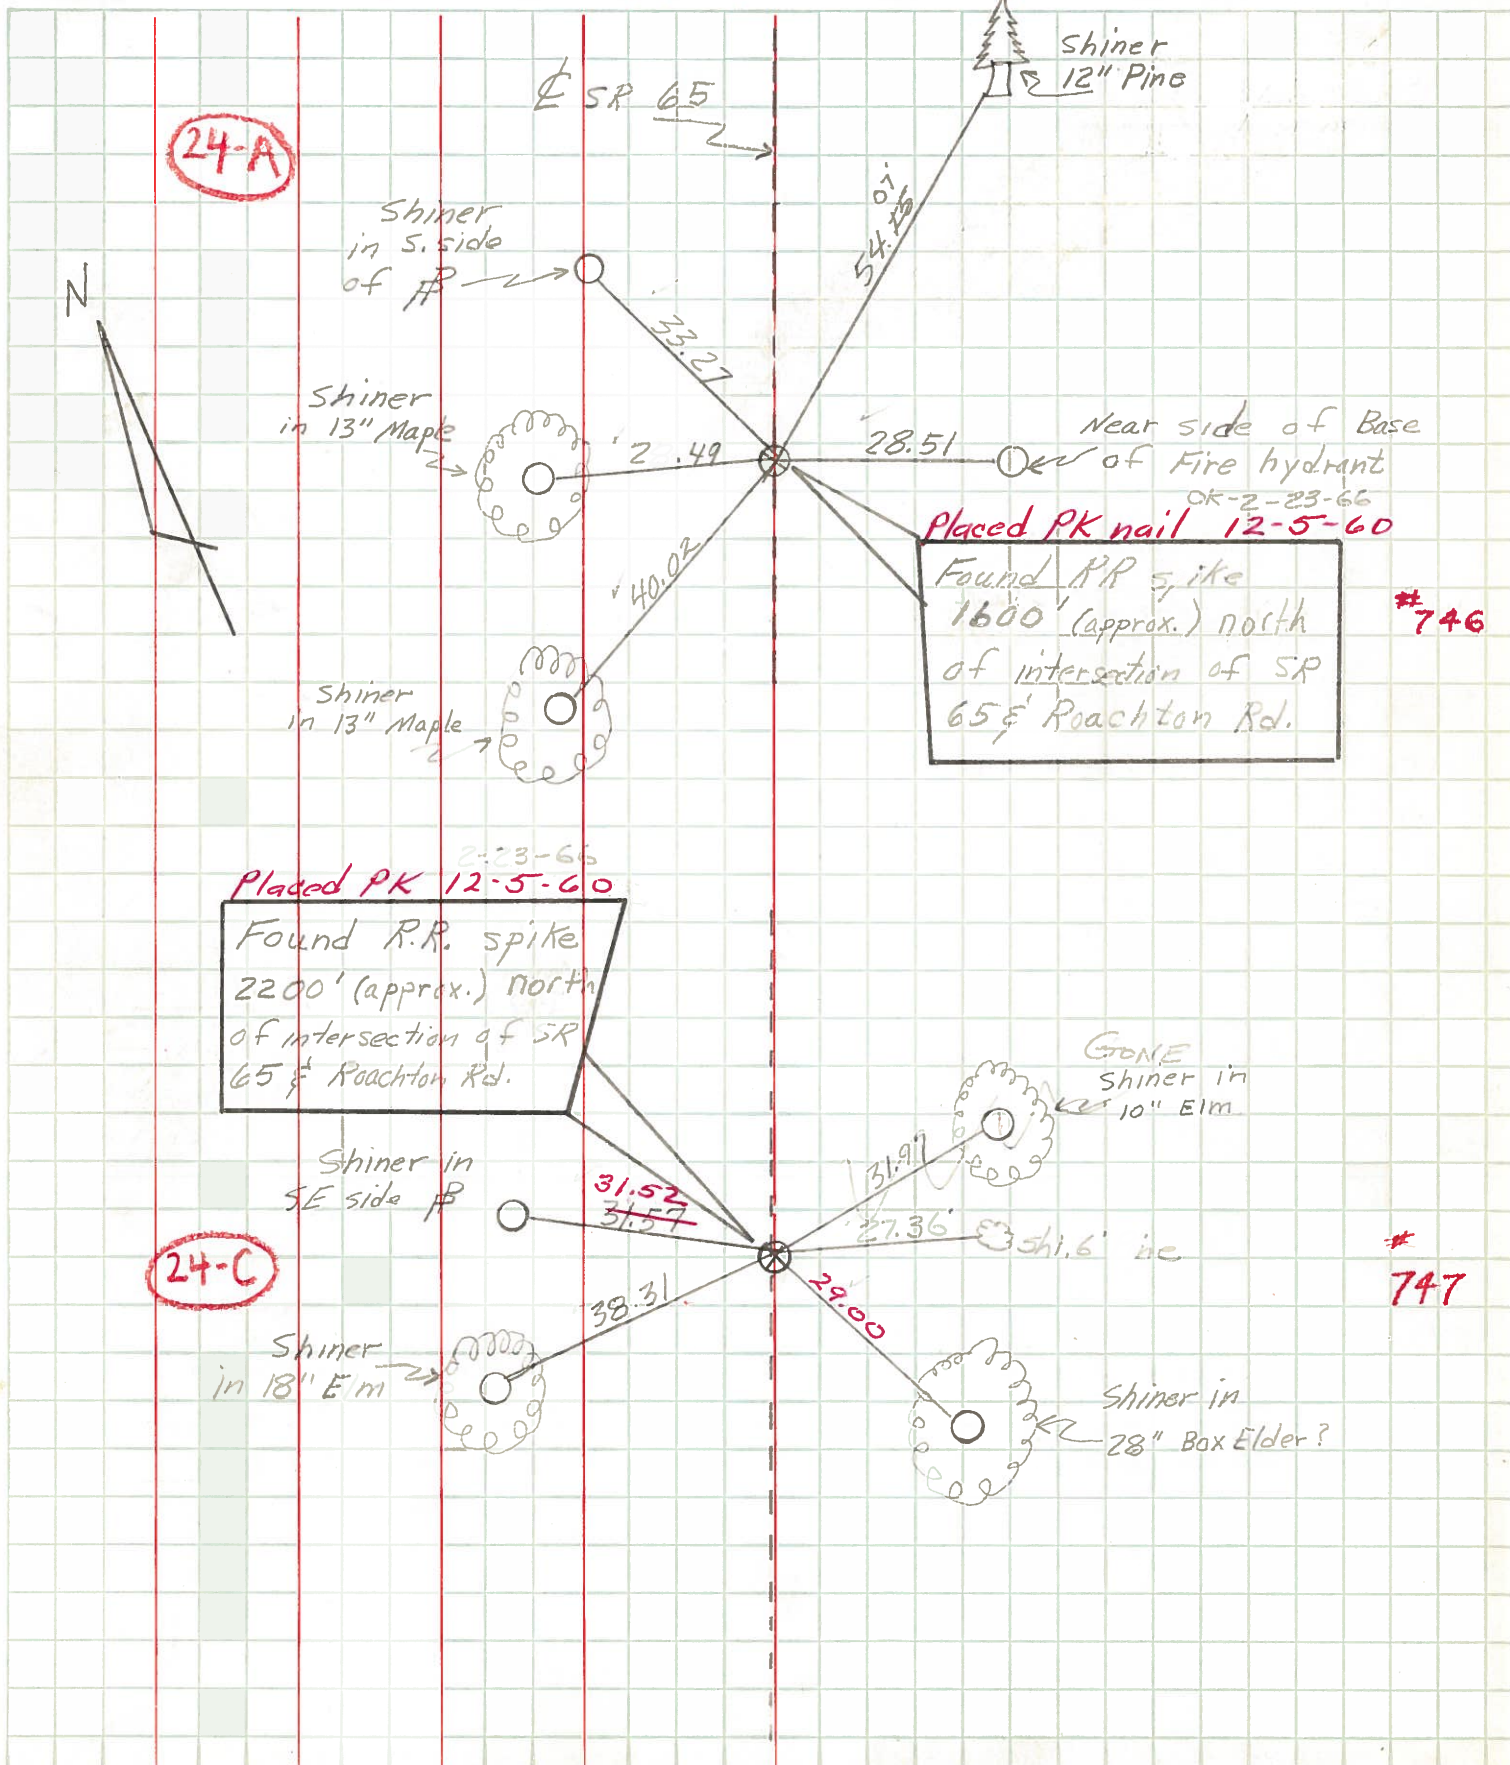 Shiner
12" Pine
℄ SR 65
24-A
54.
07
Shiner
in S. side
of PP
N
33.27
Shiner
in 13" Maple
.49
28.51
Near side of Base
of Fire hydrant
OK-2-23-66
Placed PK nail 12-5-60
Found RR spike
1600' (approx.) north
of intersection of SR
65 & Roachton Rd.
#746
40.02
Shiner
in 13" Maple
2-23-66
Placed PK 12-5-60
Found R.R. spike
2200' (approx.) north
of intersection of SR
65 & Roachton Rd.
GONE
Shiner in
10" Elm
31.97
Shiner in
SE side PP
31.52
31.57
27.36'
24-C
#
747
38.31
29.00
Shiner
in 18" Elm
Shiner in
28" Box Elder?